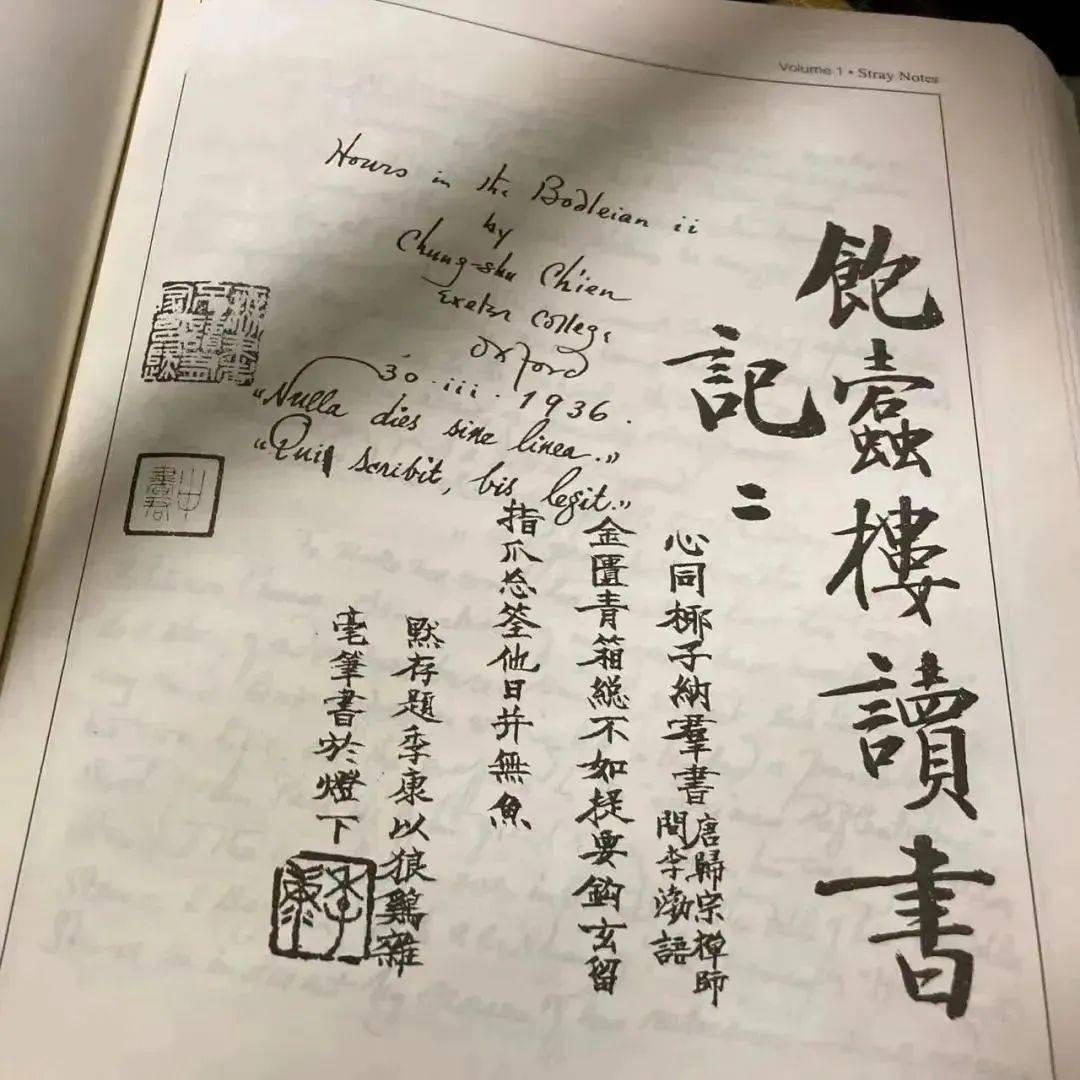 Volume 1 • Stray Notes
Hours in the Bodleian ii
by
Chung-shu Ch'ien
Exeter College
Oxford
30.iii.1936.
«Nulla dies sine linea.»
«Qui scribit, bis legit.»
飽蠹樓讀書
記
二
心同椰子納羣書
唐歸宗禪師
問李渤語
金匱青箱緫不如提要鈎玄留
指爪忘筌他日并無魚
默存題季康以狼鷄雜
毫筆書於燈下
季康